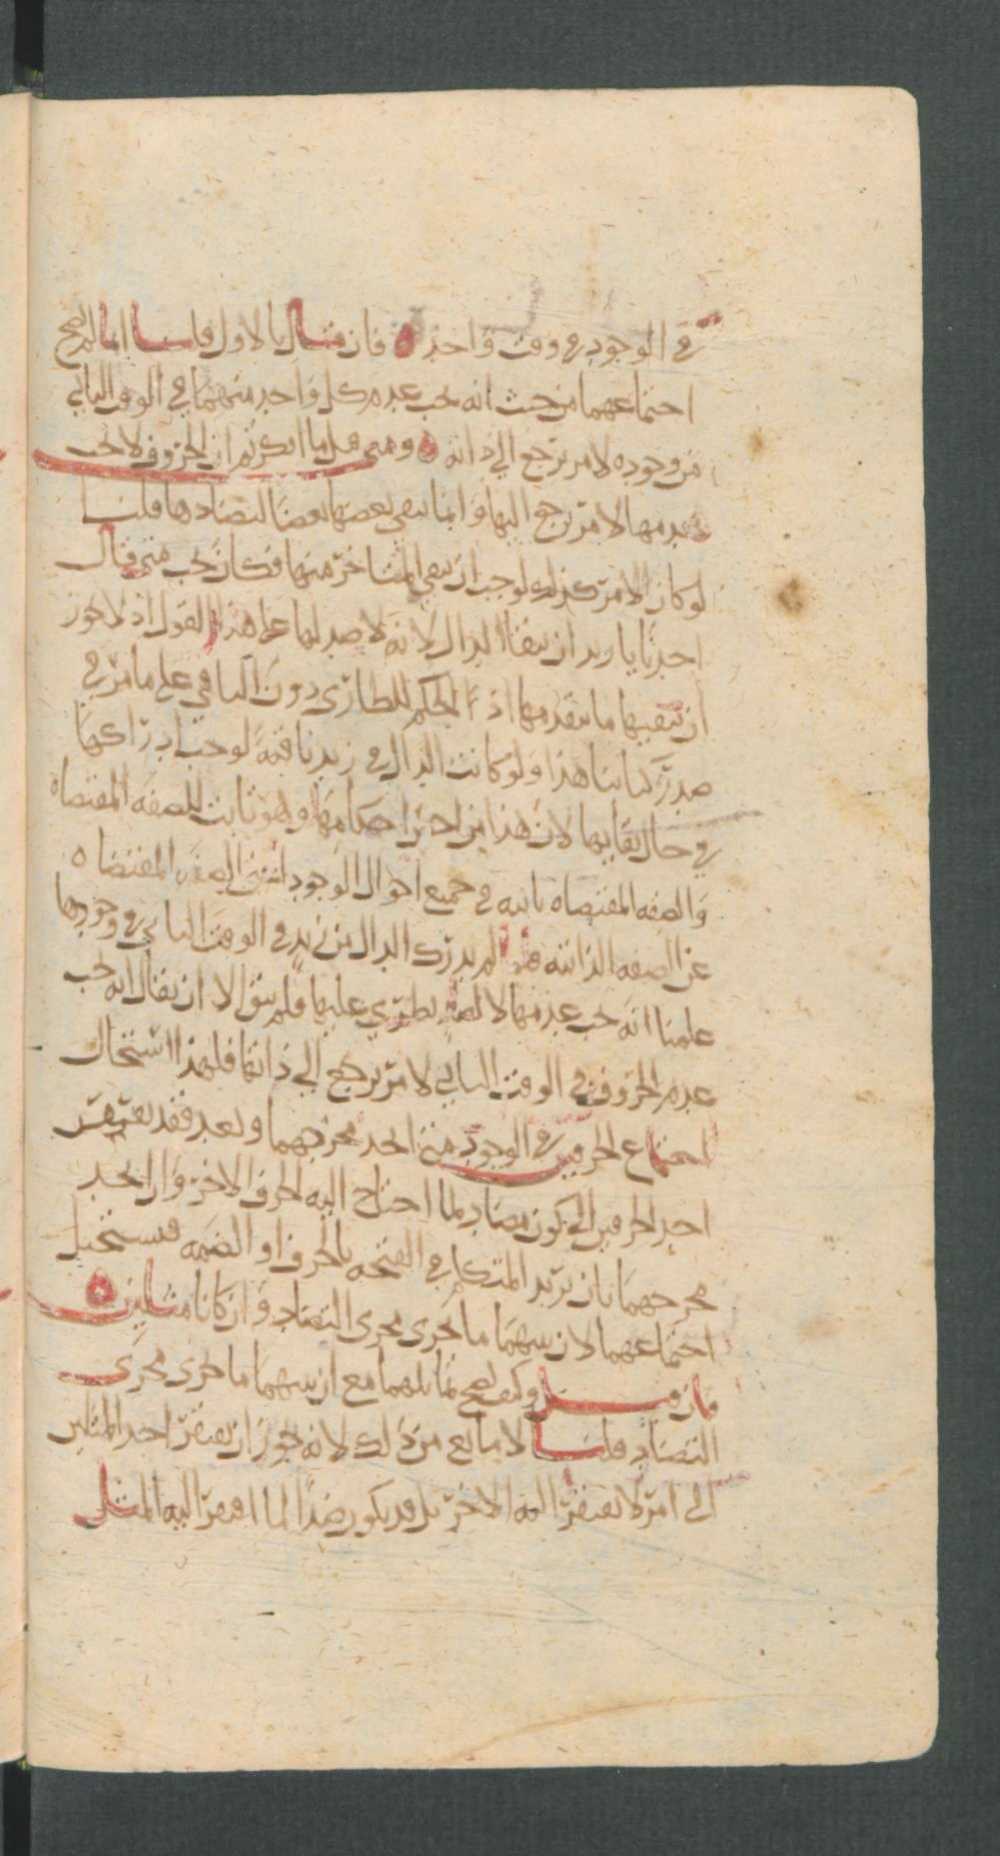 في الوجود في وقت واحد ه فان قال بالاول قلنا انما لم يصح
اجتماعهما من حيث انه يجب عدم كل واحد منهما في الوقت الثاني
من وجوده لامر يرجع الي ذاته ه ومتى قيل ما انكرتم ان الحروف لا يجب
عدمها لامر يرجع اليها وانما ينفي بعضها بعضا لتضادها قلنا
لو كان الامر كذلك لوجب ان يبقى المتأخر منها فكان يجب متى قال
احدنا يا زيد ان يبقا الدال لانه لا ضد لها على هذا القول اذ لا يجوز
ان ينفيها ما تقدمها اذ الحكم للطارئ دون الباقي على ما مر في
صدر كتابنا هذا ولو كانت الدال في زيد باقية لوجب ادراكها
في حال بقايها لان هذا من احد احكامها وهو ثابت للصفة المقتضاة
والصفه المقتضاه ثابته في جميع احوال الوجود اعني الصفة المقتضاه
عن الصفه الذاتيه فلو لم يدرك الدال من زيد في الوقت الثاني من وجودها
علمنا انه يجب عدمها لا لضد يطرئ عليها فلم يبق الا ان يقال انه يجب
عدم الحروف في الوقت الثاني لامر يرجع الي ذاتها فلهذا استحال
اجتماع الحرفين في الوجود متى اتحد مخرجهما وبعد فقد يفتقر
احد الحرفين الى كون مضاد لما احتاج اليه الحرف الاخر وان اتحد
مخرجهما بان يريد المتكلم في الفتحه بالحرف او الضمه فيستحيل
اجتماعهما لان بينهما ما يجري مجرى التضاد وان كانا مثلين ه
فان قيل وكيف يصح تماثلهما مع ان بينهما ما يجري مجرى
التضاد قلنا لا مانع من ذلك لانه يجوز ان يفتقر احد المثلين
الى امر لا يفتقر اليه الاخر بل قد يكون ضدا لما افتقر اليه المثل